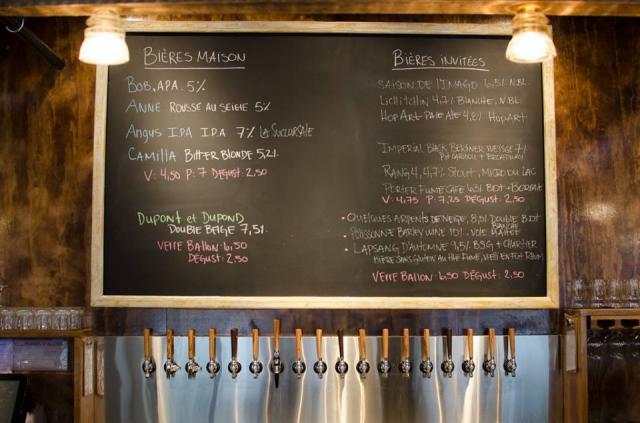 BIÈRES MAISON
BOB, APA 5%
ANNE ROUSSE AU SEIGLE 5%
ANGUS IPA IPA 7% LA SUCCURSALE
CAMILLA BITTER BLONDE 5,2%
V: 4,50 P: 7 DÉGUST: 2.50
DUPONT et DUPOND
DOUBLE BEIGE 7,5%
VERRE BALLON: 6,50
DÉGUST: 2.50
BIÈRES INVITÉES
SAISON DE L'IMAGO 6,5% N.BL.
LICHTCHIN 4.7% BLANCHE, N.BL
HOP ART-PALE ALE 4,8% HOPART
IMPERIAL BLACK BERLINER WEISSE 7%
PIT CARIBOU + BROADWAY
RANG 4, 4,7% STOUT, MICRO DU LAC
PORTER FUMÉ CAFÉ 6,5% BDT + BORÉALE
V: 4.75 P: 7,25 DÉGUST: 2.50
• QUELQUES ARPENTS DE NEIGE, 8,5% DOUBLE BLANCHE BDT
• POISSONNE BARLEY WINE 10% VOIE MALTÉE
• LAPSANG D'AUTOMNE 9,5% BSG + CHARTIER
BIÈRE SANS GLUTEN AU THÉ FUMÉ, VIEILLI EN FÛT RHUM
VERRE BALLON: 6,50 DÉGUST: 2.50